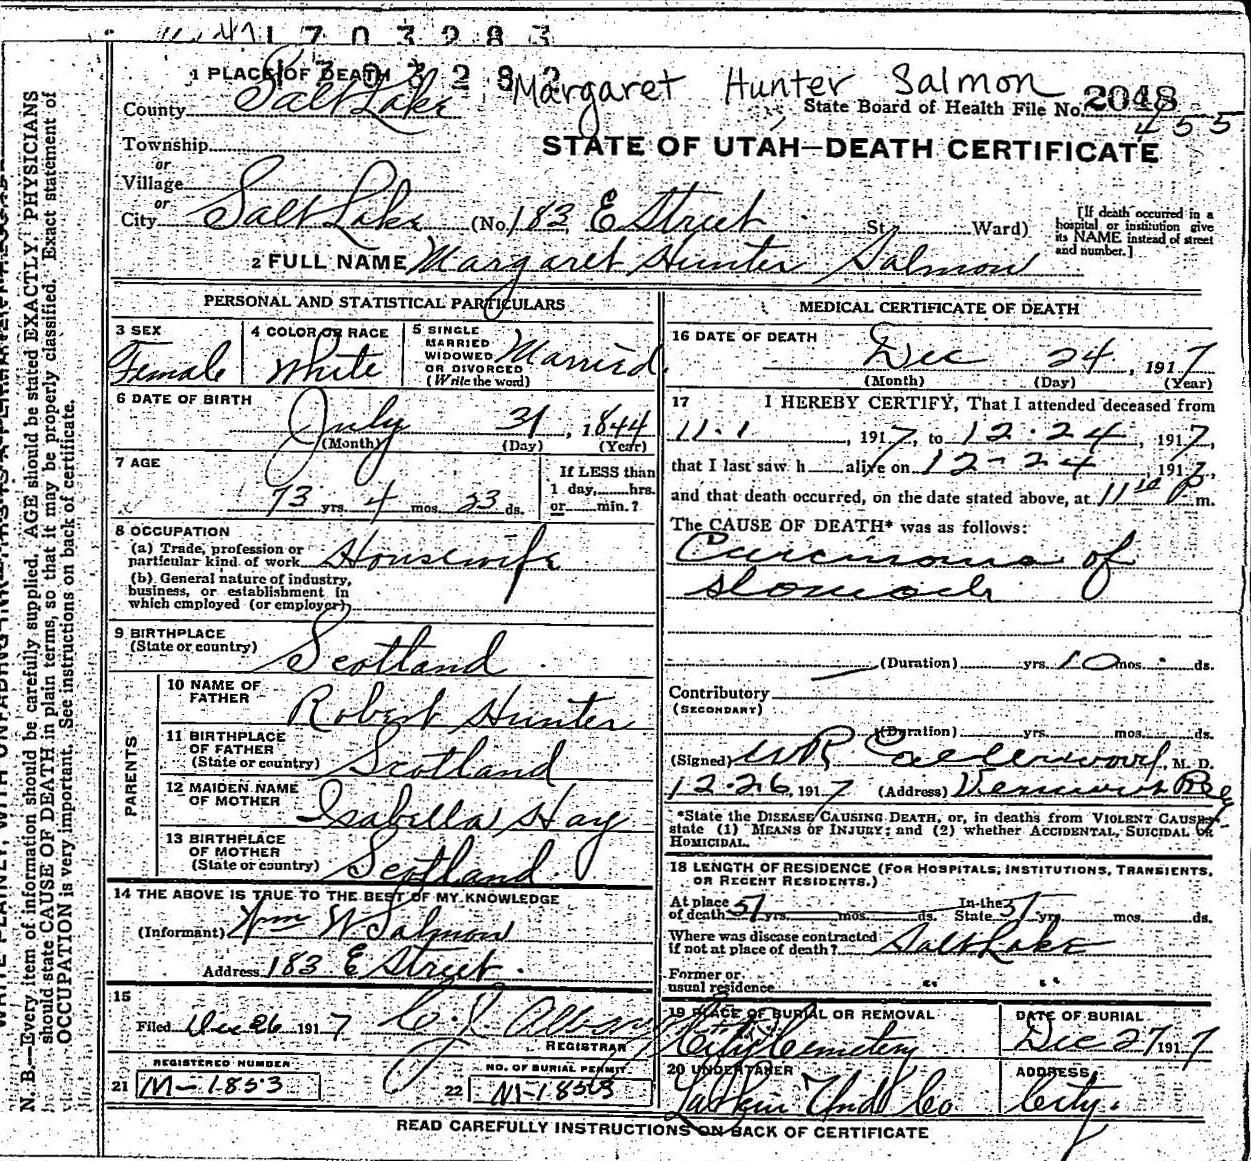 1703283
1703282
Margaret Hunter Salmon
1 PLACE OF DEATH
County Salt Lake
State Board of Health File No. 2048
455
Township
or
Village
or
STATE OF UTAH—DEATH CERTIFICATE
City Salt Lake (No. 183 E Street St. Ward)
[If death occurred in a hospital or institution give its NAME instead of street and number.]
2 FULL NAME Margaret Hunter Salmon
PERSONAL AND STATISTICAL PARTICULARS
3 SEX
Female
4 COLOR OR RACE
White
5 SINGLE
MARRIED
WIDOWED
OR DIVORCED
(Write the word)
Married
6 DATE OF BIRTH
July 31, 1844
(Month) (Day) (Year)
7 AGE
73 yrs. 4 mos. 23 ds.
If LESS than
1 day, hrs.
or min.?
8 OCCUPATION
(a) Trade, profession or
particular kind of work Housewife
(b) General nature of industry,
business, or establishment in
which employed (or employer)
9 BIRTHPLACE
(State or country) Scotland
PARENTS
10 NAME OF
FATHER Robert Hunter
11 BIRTHPLACE
OF FATHER
(State or country) Scotland
12 MAIDEN NAME
OF MOTHER Isabella Hay
13 BIRTHPLACE
OF MOTHER
(State or country) Scotland
14 THE ABOVE IS TRUE TO THE BEST OF MY KNOWLEDGE
(Informant) Wm W Salmon
Address 183 E Street.
15
Filed Dec 26 1917
REGISTRAR
REGISTERED NUMBER
21 M-1853
NO. OF BURIAL PERMIT
22 M-1853
MEDICAL CERTIFICATE OF DEATH
16 DATE OF DEATH
Dec 24, 1917
(Month) (Day) (Year)
17 I HEREBY CERTIFY, That I attended deceased from
11.1, 1917, to 12.24, 1917,
that I last saw h alive on 12-24, 1917,
and that death occurred, on the date stated above, at 11 10 P m.
The CAUSE OF DEATH* was as follows:
Carcinoma of
stomach
(Duration) yrs. 10 mos. ds.
Contributory
(SECONDARY)
(Duration) yrs. mos. ds.
(Signed) W R Calderwood, M. D.
12.26, 1917 (Address)
*State the DISEASE CAUSING DEATH, or, in deaths from VIOLENT CAUSES,
state (1) MEANS OF INJURY; and (2) whether ACCIDENTAL, SUICIDAL OR
HOMICIDAL.
18 LENGTH OF RESIDENCE (FOR HOSPITALS, INSTITUTIONS, TRANSIENTS,
OR RECENT RESIDENTS.)
At place
of death 51 yrs. mos. ds. In the State 51 yrs. mos. ds.
Where was disease contracted
if not at place of death? Salt Lake
Former or
usual residence " "
19 PLACE OF BURIAL OR REMOVAL
City Cemetery
DATE OF BURIAL
Dec 27 1917
20 UNDERTAKER
Larkin Und Co
ADDRESS
City.
READ CAREFULLY INSTRUCTIONS ON BACK OF CERTIFICATE
N. B.—Every item of information should be carefully supplied. AGE should be stated EXACTLY. PHYSICIANS
should state CAUSE OF DEATH in plain terms, so that it may be properly classified. Exact statement of
OCCUPATION is very important. See instructions on back of certificate.